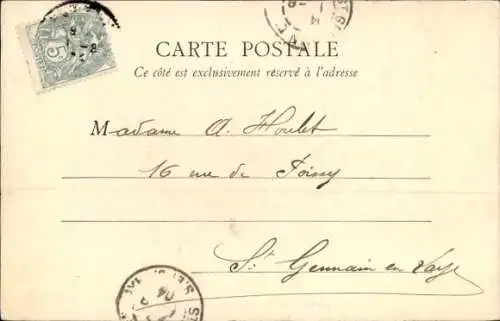 5
CARTE POSTALE
Ce côté est exclusivement réservé à l'adresse
Madame A. Houlet
16 rue de Poissy
St Germain en Laye
04